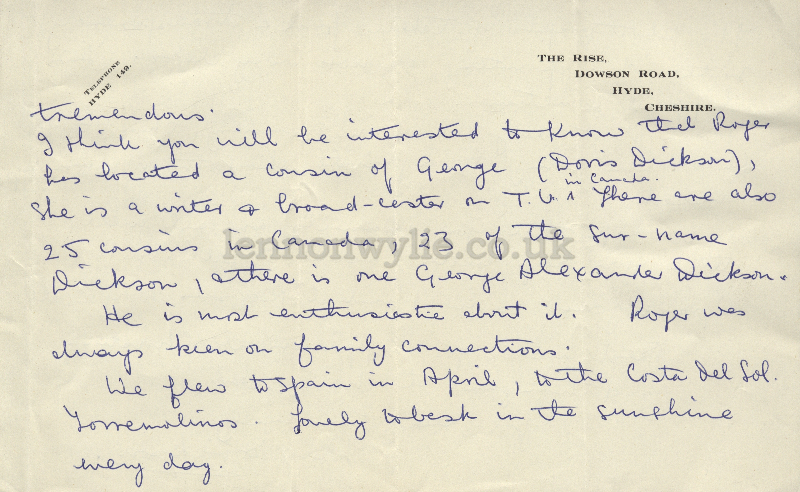 TELEPHONE
HYDE 149.
THE RISE,
DOWSON ROAD,
HYDE,
CHESHIRE.
tremendous.
I think you will be interested to know that Roger
has located a cousin of George (Doris Dickson),
She is a writer & broad-caster on T.V. in Canada. There are also
25 cousins in Canada, 23 of the Sur-name
Dickson, & there is one George Alexander Dickson.
He is most enthusiastic about it. Roger was
always keen on family connections.
We flew to Spain in April, to the Costa Del Sol.
Torremolinos. Lovely to bask in the sunshine
every day.
lennonwylie.co.uk